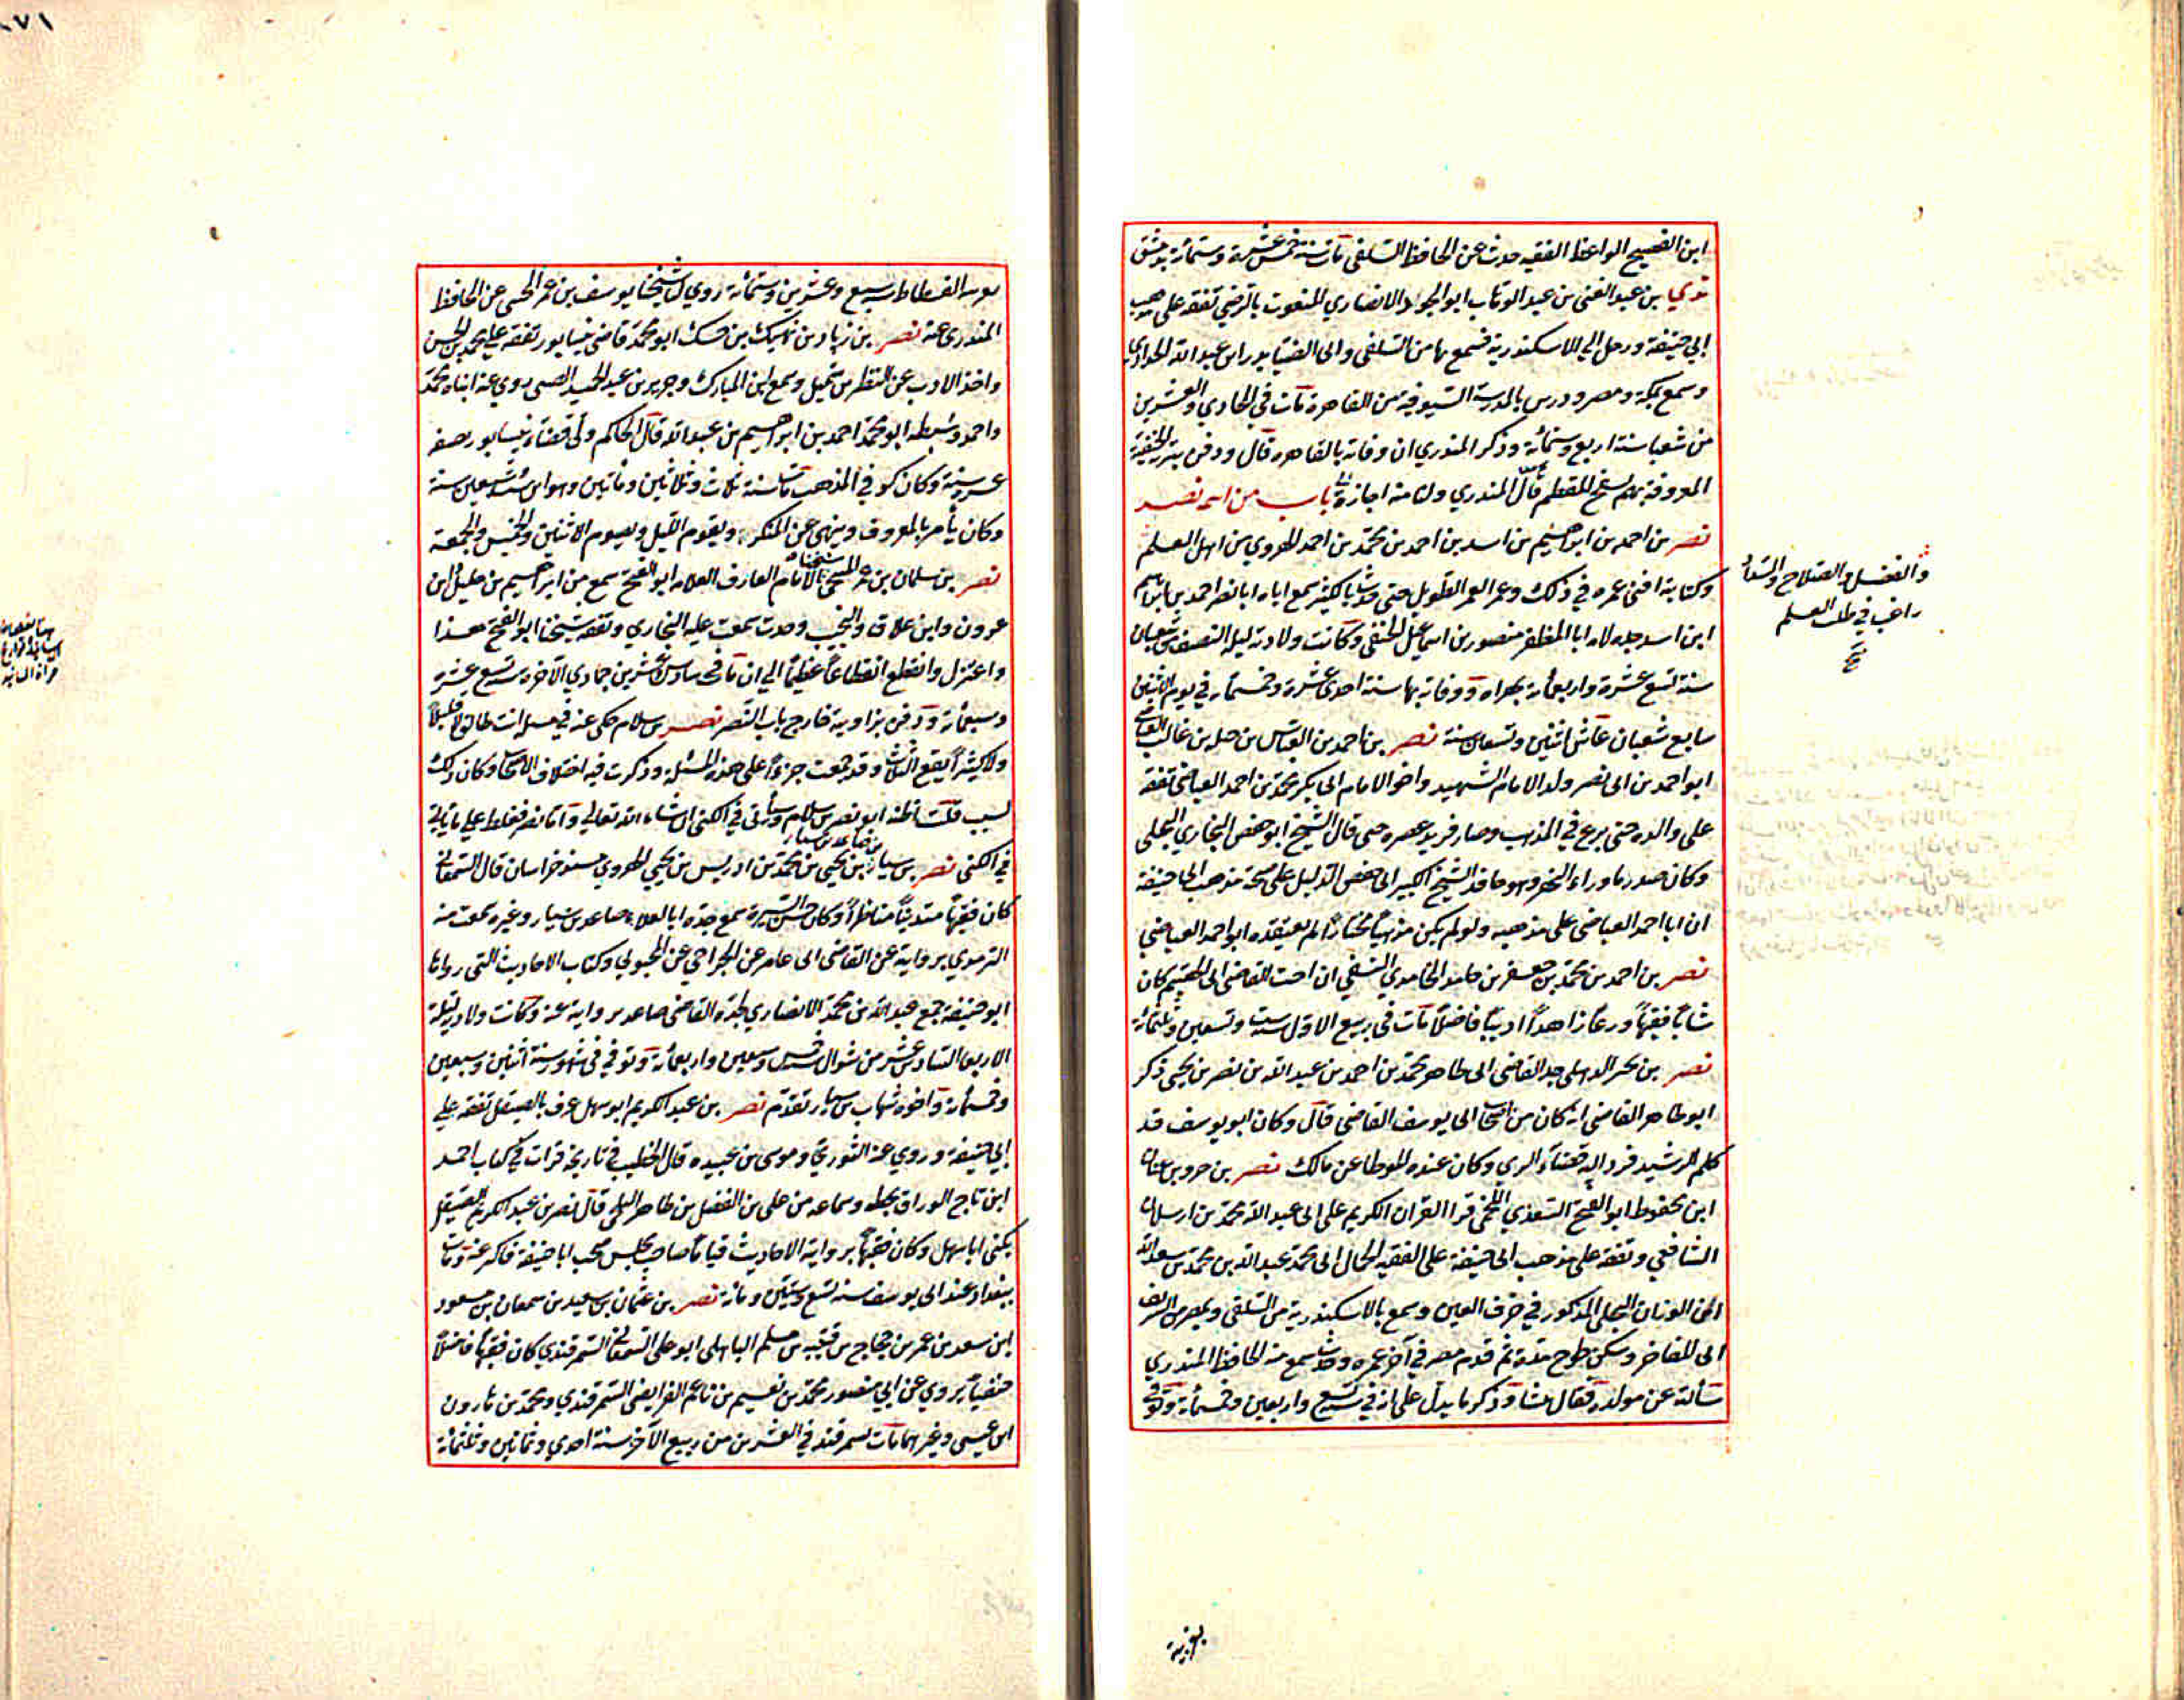 ابن الفصيح الواعظ الفقيه حدث عن الحافظ السلفي مات سنة خمس عشرة وستمائة بدمشق
ندي بن عبد الغني بن عبد الوهاب ابو الجود الانصاري المنعوت بالرضي تفقه على مذهب
ابي حنيفة ورحل الى الاسكندرية فسمع بها من السلفي وابي الضيا بدر ابن عبد الله
وسمع بمكة ومصر ودرس بالمدرسة السيوفية من القاهرة مات في الحادي والعشرين
من شعبان سنة اربع وستمائة وذكر المنذري ان وفاته بالقاهرة قال ودفن بتربة الحنفية
المعروفة بهم بسفح المقطم قال المنذري ولنا منه اجازة باب من اسمه نصر
نصر بن احمد بن ابراهيم بن اسد بن احمد بن محمد بن احمد الهروي من اهل العلم
والفضل والصلاح
راغب في طلب العلم
صح
وكتابة افنى عمره في ذلك وعمر العمر الطويل حتى حدث بالكثير سمع اباه ابا نصر احمد بن ابراهيم
ابن اسد وجده لامه ابا المظفر منصور بن اسماعيل الحنفي وكانت ولادته ليلة النصف من شعبان
سنة تسع عشرة واربعمائة بهراة ووفاته بها سنة احدى عشرة وخمسمائة في يوم الاثنين
سابع شعبان عاش اثنتين وتسعين سنة نصر بن احمد بن العباس بن جبلة بن غالب العياضي
ابو احمد بن ابي نصر ولد الامام الشهيد واخو الامام ابي بكر محمد بن احمد العياضي تفقه
على والده حتى برع في المذهب وصار فريد عصره حتى قال الشيخ ابو حفص البخاري البجلي
وكان صدر ما وراء النهر وهو حافد الشيخ الكبير ابي حفص الدليل على صحة مذهب ابي حنيفة
ان ابا احمد العياضي على مذهبه ولو لم يكن مذهبا مختارا لم يعتقده ابو احمد العياضي
نصر بن احمد بن محمد بن جعفر بن حامد الحامدي النسفي ابن اخت القاضي ابي الهيثم كان
شابا فقيها ورعا زاهدا اديبا فاضلا مات في ربيع الاول سنة ست وتسعين وثلثمائة
نصر بن بحر الذهلي جد القاضي ابي طاهر محمد بن احمد بن عبد الله بن نصر بن يحيى ذكر
ابو طاهر القاضي انه كان من اصحاب ابي يوسف القاضي قال وكان ابو يوسف قد
كلم الرشيد فرد اليه قضاء الري وكان عنده الموطا عن مالك نصر بن
ابن محفوظ ابو الفتح السعدي اللخمي قرا القران الكريم على ابي عبد الله محمد بن ارسلان
الشافعي وتفقه على مذهب ابي حنيفة على الفقيه الجمال ابي محمد عبد الله بن محمد بن سعد الله
ابن الوزان البجلي المذكور في حرف العين وسمع بالاسكندرية من السلفي وبمصر من الشريف
ابي المفاخر وسكن مدة ثم قدم مصر في آخر عمره وحدث سمع منه الحافظ المنذري
سألته عن مولده فقال وذكر ما يدل على انه في سنة سبع واربعين وخمسمائة وتوفي
بقرية
بقرية الفسطاط سنة سبع وعشرين وستمائة روى لنا شيخنا يوسف بن عمر الختني عن الحافظ
المنذري عنه نصر بن زياد بن نهيك بن ابو محمد قاضي نيسابور تفقه على محمد بن الحسن
واخذ الادب عن النضر بن شميل وسمع ابن المبارك وجرير بن عبد الحميد الضبي روى عنه ابناه محمد
واحمد وسبطه ابو محمد احمد بن ابراهيم بن عبد الله قال الحاكم ولي قضاء نيسابور بضع
عشرة سنة وكان كوفي المذهب مات سنة ثلاث وثلاثين ومائتين وهو ابن ست وتسعين سنة
وكان يأمر بالمعروف وينهى عن المنكر ويقوم الليل ويصوم الاثنين والخميس والجمعة
نصر بن سلمان بن عمر المنبجي شيخنا الامام العارف العلامة ابو الفتح سمع من ابراهيم بن خليل ابن
عزون وابن علاق والنجيب وحدث سمعت عليه البخاري وتفقه شيخنا ابو الفتح هذا
واعتزل وانقطع انقطاعا عظيما الى ان مات في سادس عشرين جمادي الآخرة سنة تسع عشرة
وسبعمائة ودفن بزاويته خارج باب النصر نصر بن سلام حكى عنه في مسئلة انت طالق لا قليلا
ولا كثيرا يقع الثلاث وقد جمعت جزءا على هذه المسئلة وذكرت فيه اختلاف الاصحاب وكان ذلك
لسبب قلت اظنه ابو نصر بن سلام وسيأتي في الكنى ان شاء الله تعالى واما نصر فغلط على ما يأتي
في الكنى نصر بن سيار بن صاعد بن سيار بن يحيى بن محمد بن ادريس بن يحيى الهروي مسند خراسان قال السمعاني
كان فقيها متدينا مناظرا وكان حسن السيرة سمع جده ابا العلاء صاعد بن سيار وغيره سمعت منه
الترمذي بروايته عن القاضي ابي عامر عن الجراحي عن المحبوبي وكتاب الاحاديث التي رواها
ابو حنيفة جمع عبد الله بن محمد الانصاري لجده القاضي صاعد بروايته عنه وكانت ولادته ليلة
الاربعا السادس عشر من شوال سنة خمس وسبعين واربعمائة وتوفي في شهور سنة اثنين وسبعين
وخمسمائة واخوه شهاب بن سيار تقدم نصر بن عبد الكريم ابو سهل عرف بالصيقل تفقه على
ابي حنيفة وروى عنه الثوري وموسى بن عبيدة قال الخطيب في تاريخه قرات في كتاب احمد
ابن تاج الوراق بخطه وسماعه من علي بن الفضل بن طاهر البلخي قال نصر بن عبد الكريم الصيقل
يكنى ابا سهل وكان فقيها برواية الاحاديث صاحب مجلس صحب ابا حنيفة فاكثر عنه ومات
ببغداد عند ابي يوسف سنة تسع وستين ومائة نصر بن عثمان بن سعيد بن سمعان بن مسعود
ابن سعد بن عمر بن حجاج بن قتيبة بن مسلم الباهلي ابو علي السمرقندي كان فقيها فاضلا
حنفيا يروي عن ابي منصور محمد بن نعيم بن ناعم الفرايضي السمرقندي ومحمد بن هارون
ابن عيسى وغيرهما مات بسمرقند في العشرين من ربيع الآخر سنة احدى وثمانين وثلثمائة